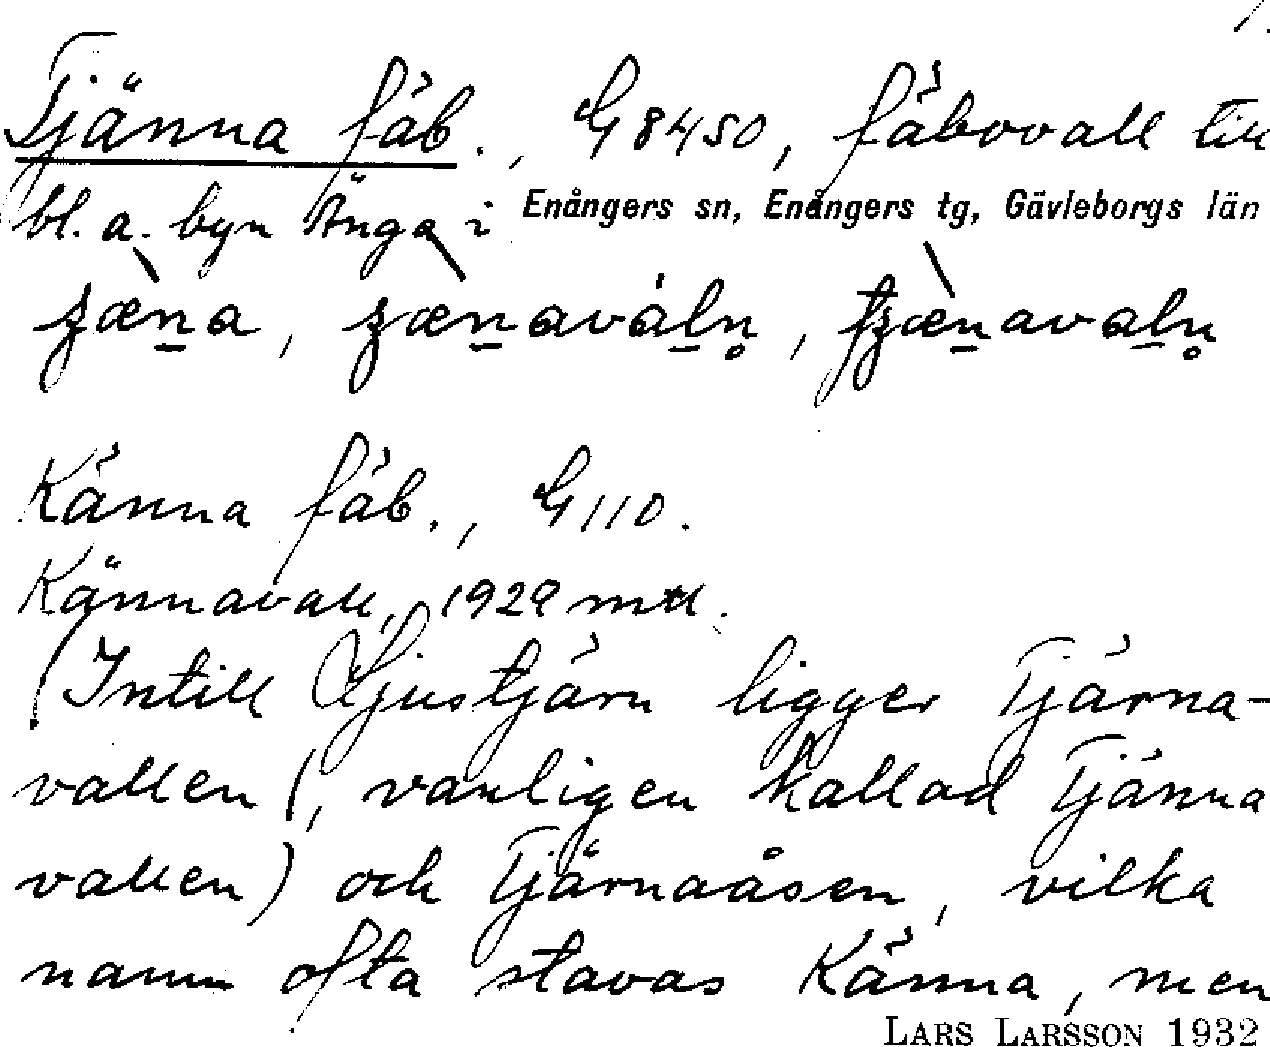 1.
Tjänna fäb., G 8450, fäbovall till
bl. a. byn Änga i Enångers sn, Enångers tg, Gävleborgs län
Känna fäb., G 110.
Kännavall, 1929 mtl.
(Intill Ljustjärn ligger Tjärna-
vallen (, vanligen kallad Tjänna
vallen) och Tjärnaåsen, vilka
namn ofta stavas Känna, men
LARS LARSSON 1932